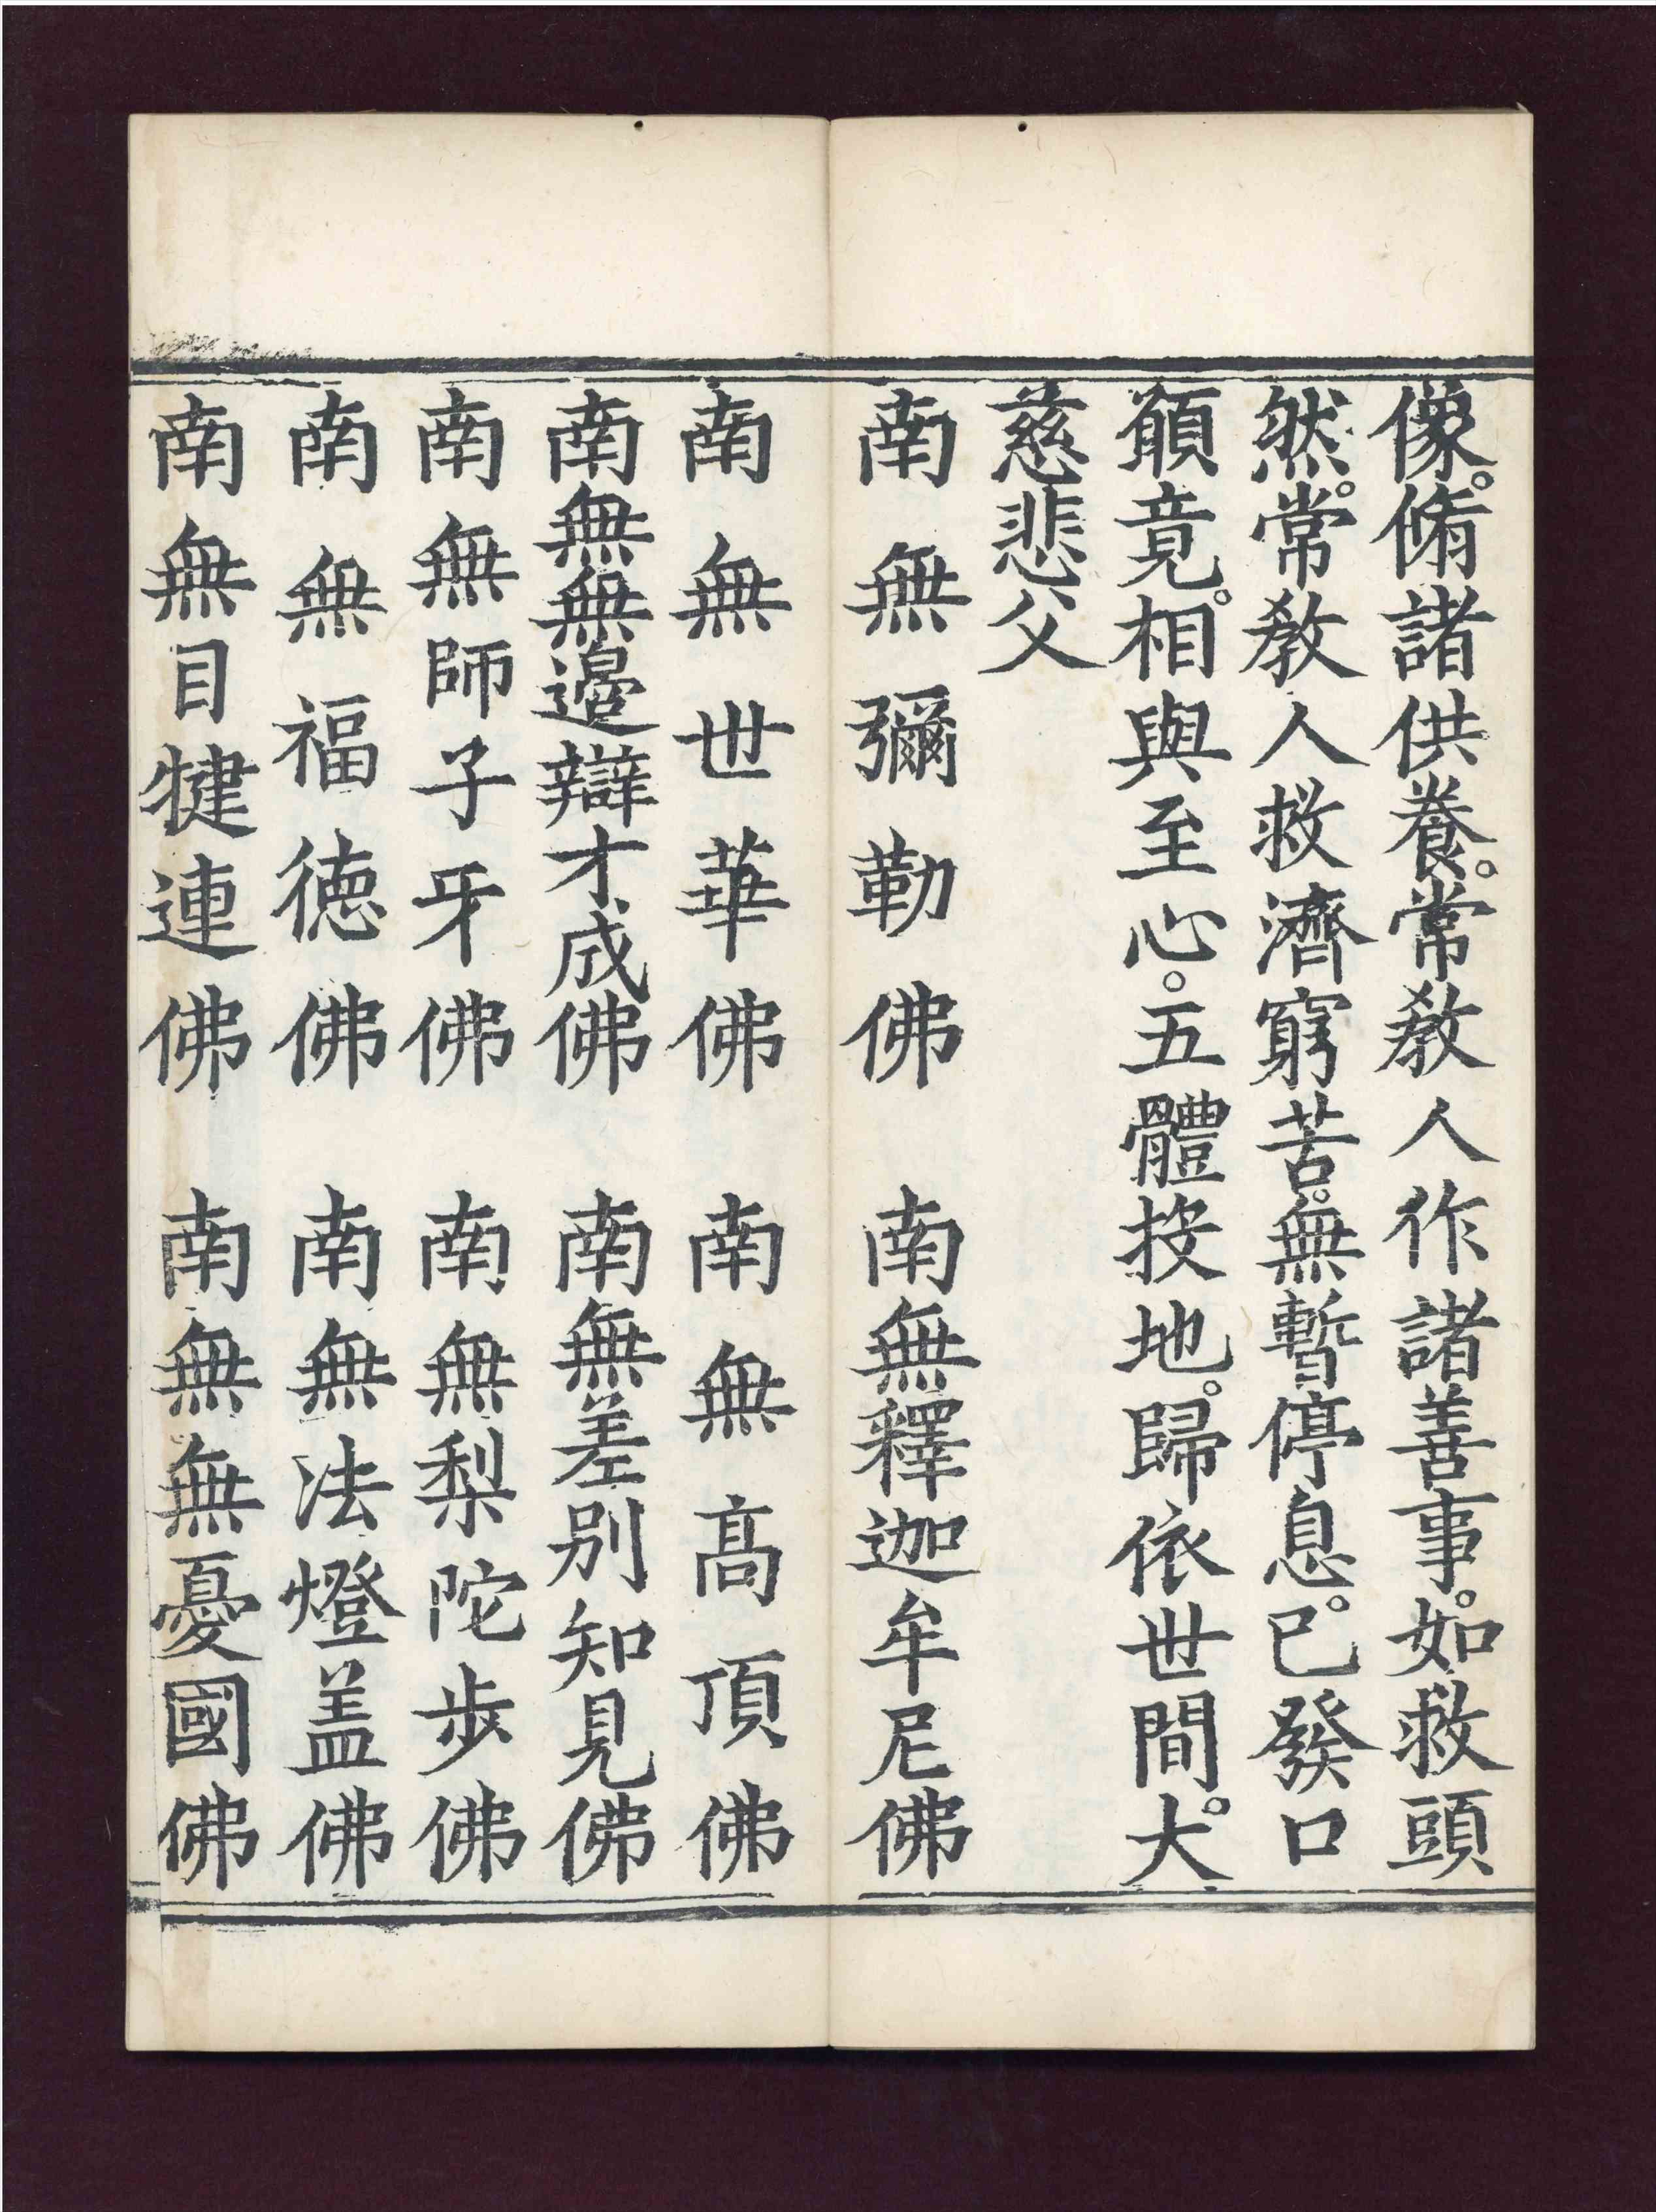 像。脩諸供養。常教人作諸善事。如救頭
然。常教人救濟窮苦。無暫停息。已發口
願竟。相與至心。五體投地。歸依世間。大
慈悲父
南無彌勒佛　南無釋迦牟尼佛
南無世華佛　南無高頂佛
南無無邊辯才成佛　南無差别知見佛
南無師子牙佛　南無梨陀步佛
南無福德佛　南無法燈盖佛
南無目犍連佛　南無無憂國佛